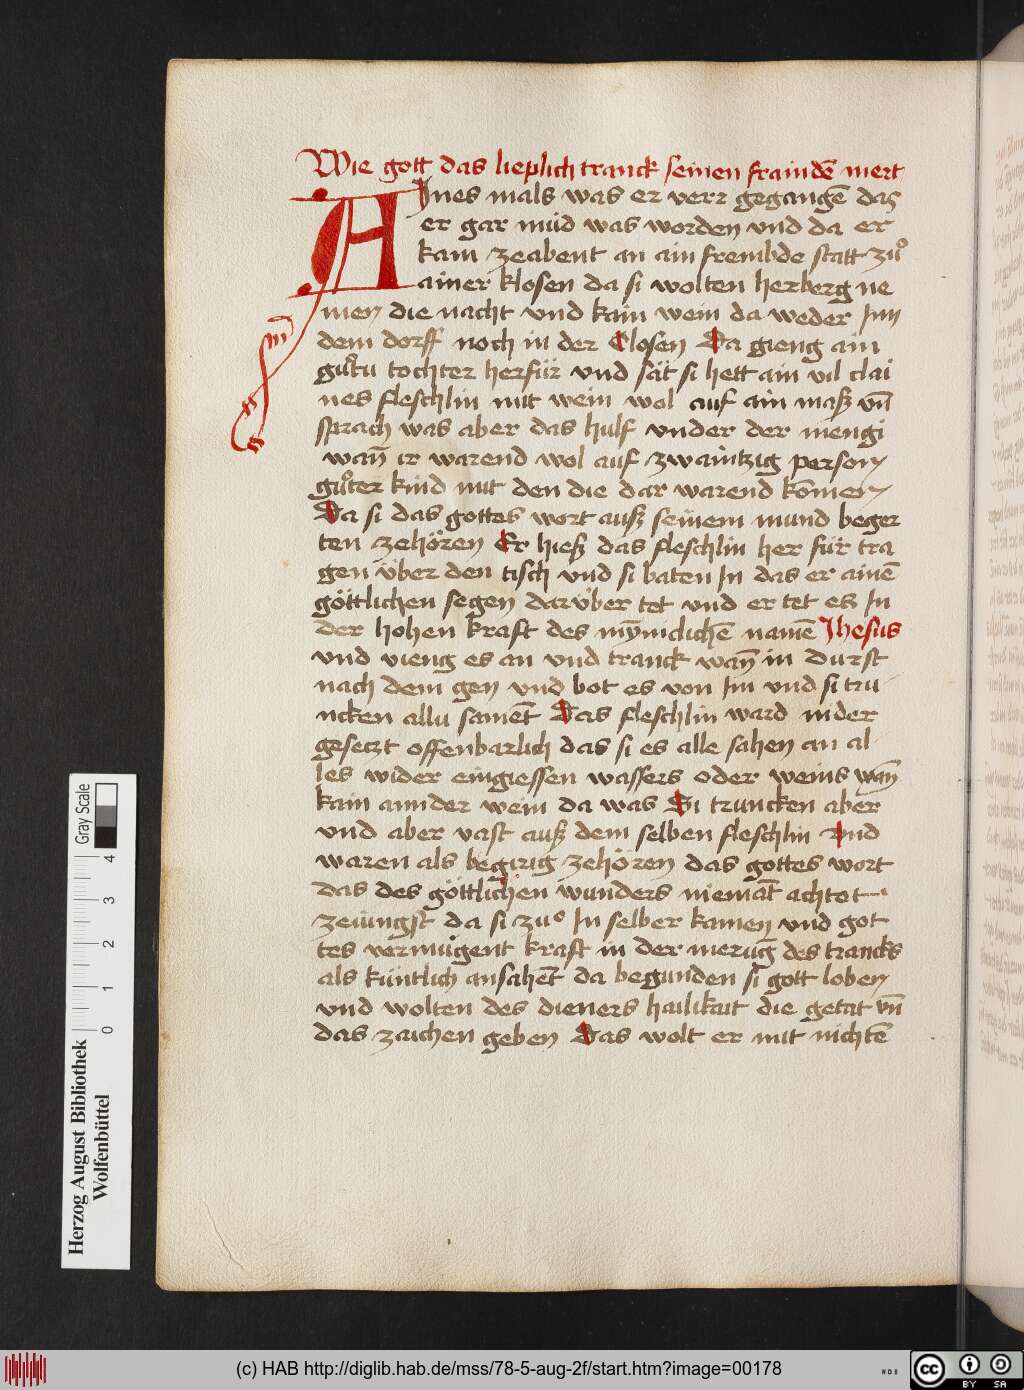 Wie gott das lieplich tranck seinen fraindē mert
AInes mals was er verr gegangē das
er gar müd was worden vnd da er
kam zeabent an ain frembde statt zuͦ
ainer klosen da si wolten herberg ne
men die nacht vnd kain wein da weder Inn
dem dorff noch in der Closen Da gieng ain
guͦtu tochter herfür vnd sät si hett ain vil clai
nes fleschlin mit wein wol auf ain masz vn̄
sprach was aber das hulf vnder der mengi
wan̄ ir warend wol auf zwaintzig person
guͦter kind mit den die dar warend kōmen
Da si das gottes wort ausz seinem mund beger
ten zehören Er hiesz das fleschlin her für tra
gen über den tisch vnd si baten In das er ainē
göttlichen segen darüber tet vnd er tet es In
der hohen kraft des mȳniclichē namē Jhesus
vnd vieng es an vnd tranck wan̄ in durst
nach dem gen vnd bot es von Im vnd si tru
ncken allu samēt Das fleschlin ward nider
gesetzt offenbarlich das si es alle sahen an al
les wider eingiessen wassers oder weins wan̄
kain annder wein da was Si truncken aber
vnd aber vast ausz dem selben fleschlin Vnd
waren als begirig zehören das gottes wort
das des göttlichen wunders niemāt achtet
zeiüngst da si zuͦ In selber kamen vnd got
tes vermügent kraft in der merūg des trancks
als küntlich ansahēt da begunden si gott loben
vnd wolten des dieners hailikait die getat vn̄
das zaichen geben Das wolt er mit nichtē
Herzog August Bibliothek
Wolfenbüttel
0 1 2 3 4
Gray Scale
(c) HAB http://diglib.hab.de/mss/78-5-aug-2f/start.htm?image=00178
WDB
cc BY SA